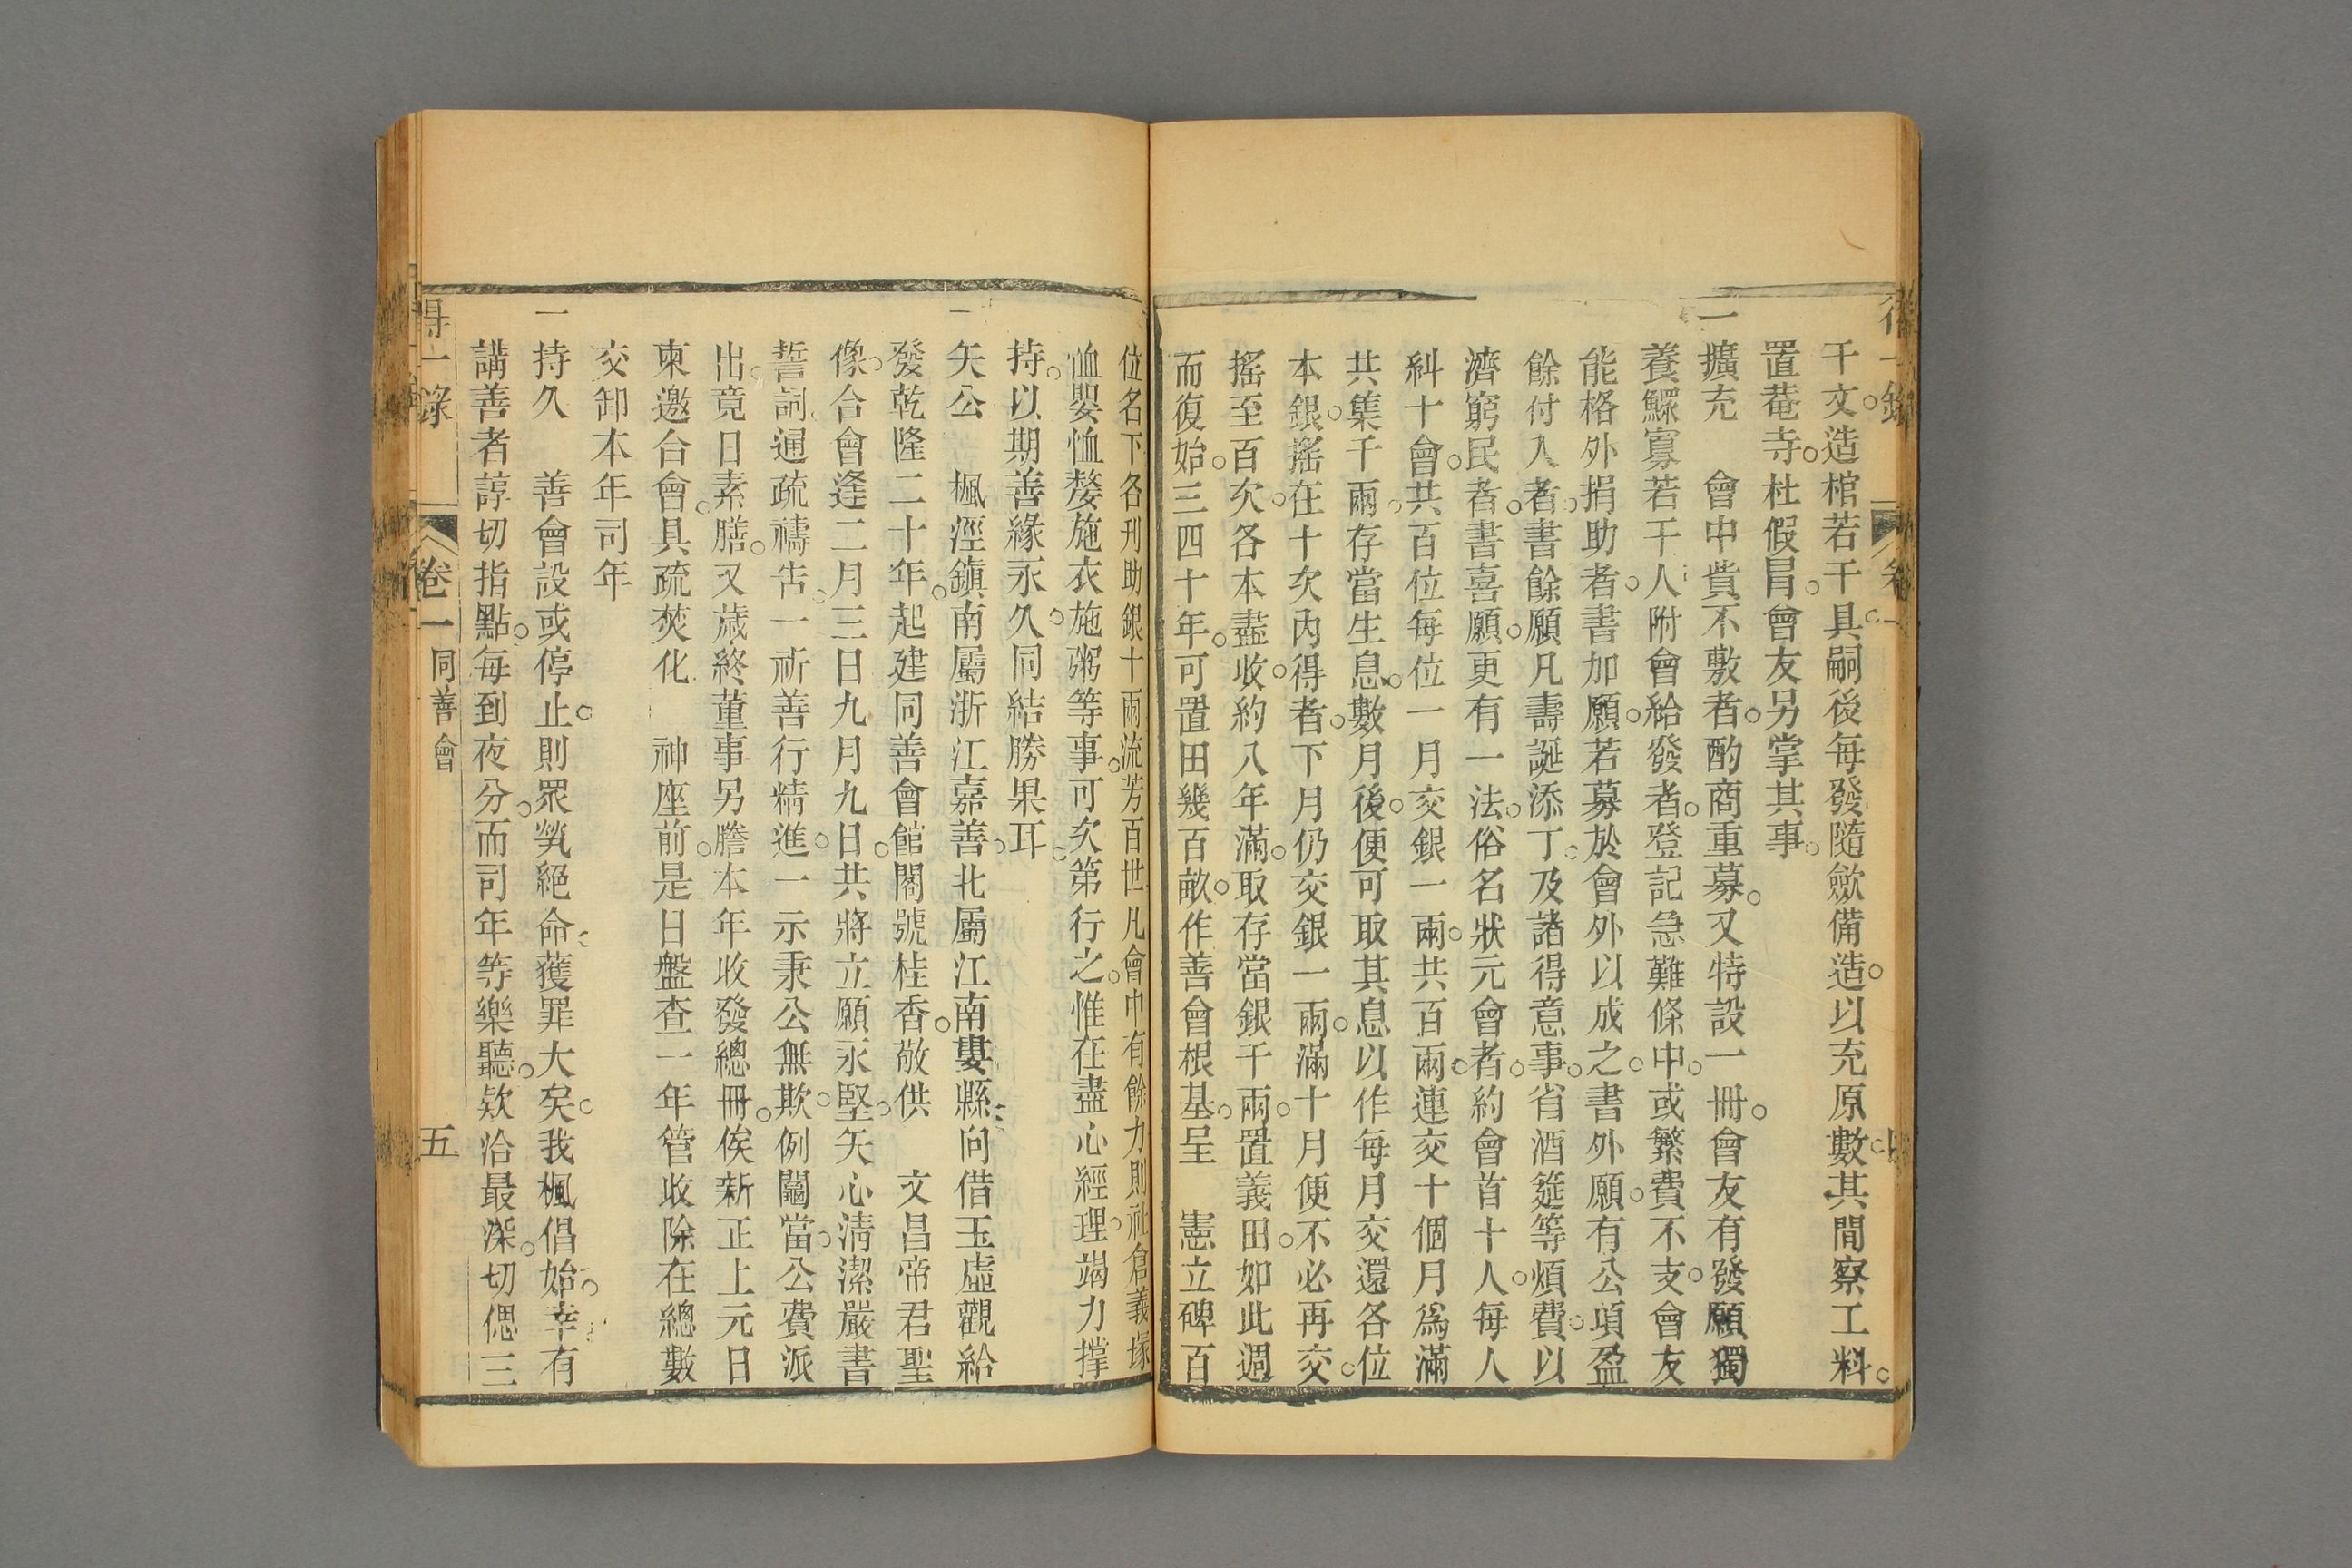 一錄
卷一
千文造棺若干具嗣後每發隨歛備造以充原數其間察工料
置菴寺杜假冒會友另掌其事
一擴充　會中貲不敷者酌商重募又特設一冊會友有發願獨
養鰥寡若干人附會給發者登記急難條中或繁費不支會友
能格外捐助者書加願若募於會外以成之書外願有公項盈
餘付入者書餘願凡壽誕添丁及諸得意事省酒筵等煩費以
濟窮民者書喜願更有一法俗名狀元會者約會首十人每人
糾十會共百位每位一月交銀一兩共百兩連交十個月爲滿
共集千兩存當生息數月後便可取其息以作每月交還各位
本銀搖在十次內得者下月仍交銀一兩滿十月便不必再交
搖至百次各本盡收約八年滿取存當銀千兩置義田如此週
而復始三四十年可置田幾百畝作善會根基呈　憲立碑百
位名下各刊助銀十兩流芳百世凡會中有餘力則社倉義塚
恤嬰恤嫠施衣施粥等事可次第行之惟在盡心經理竭力撑
持以期善緣永久同結勝果耳
一矢公　楓涇鎮南屬浙江嘉善北屬江南婁縣向借玉虛觀給
發乾隆二十年起建同善會館閣號桂香敬供　文昌帝君聖
像合會逢二月三日九月九日共將立願永堅矢心清潔嚴書
誓詞通疏禱告一祈善行精進一示秉公無欺例鬮當公費派
出竟日素膳又歲終董事另謄本年收發總冊俟新正上元日
柬邀合會具疏焚化　神座前是日盤查一年管收除在總數
交卸本年司年
一持久　善會設或停止則眾煢絕命獲罪大矣我楓倡始幸有
講善者諄切指點每到夜分而司年等樂聽欵洽最深切偲三
得一錄
卷一　同善會
五